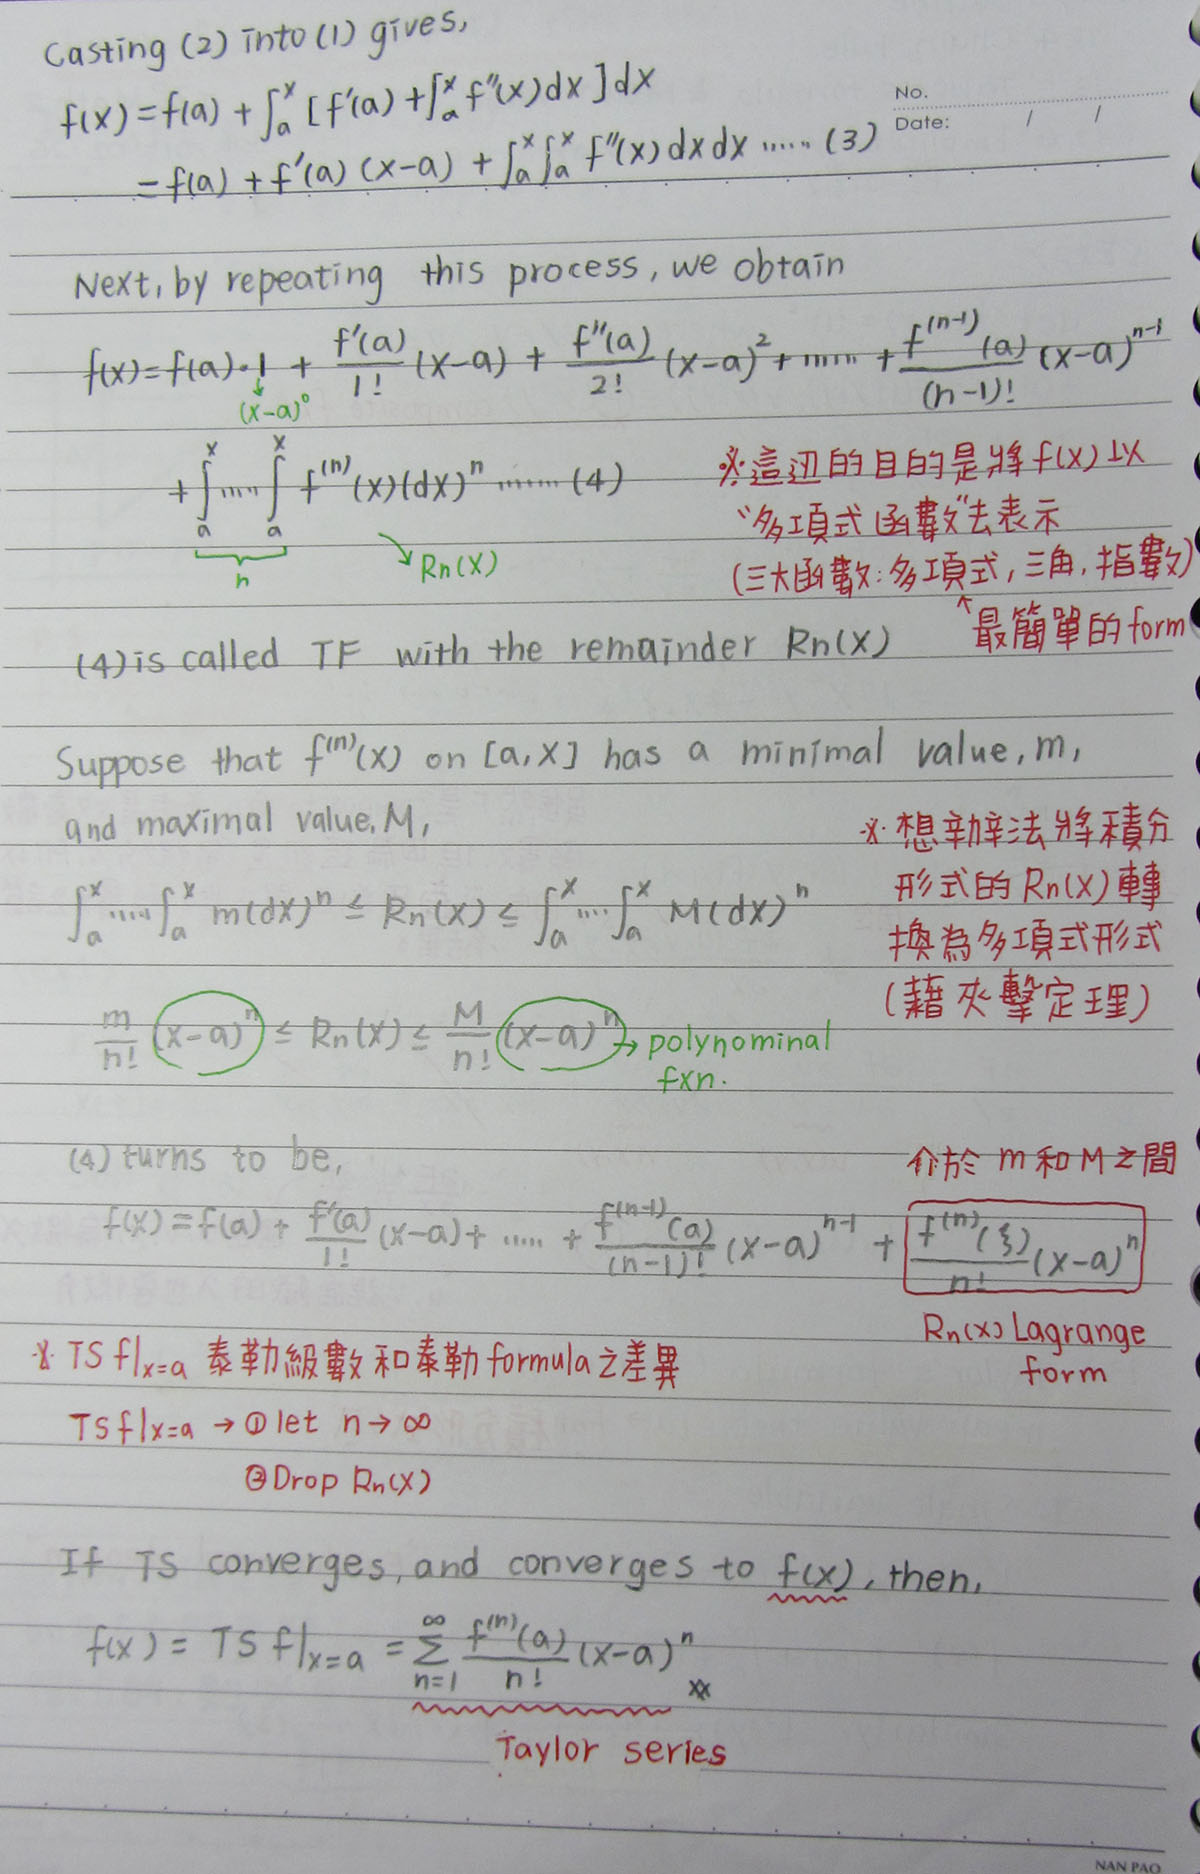 Casting (2) into (1) gives,
f(x) = f(a) + ∫ₐˣ [f'(a) + ∫ₐˣ f''(x)dx]dx
No.
Date: / /
= f(a) + f'(a)(x-a) + ∫ₐˣ∫ₐˣ f''(x)dxdx ...... (3)
Next, by repeating this process, we obtain
f(x) = f(a)·1 + f'(a)/1! (x-a) + f''(a)/2! (x-a)² + ...... + f⁽ⁿ⁻¹⁾(a)/(n-1)! (x-a)ⁿ⁻¹
↓
(x-a)⁰
+ ∫ₐˣ ..... ∫ₐˣ f⁽ⁿ⁾(x)(dx)ⁿ ....... (4)
n
→ Rn(x)
※ 這边的目的是將 f(x) 以
"多項式函數"去表示
(三大函數:多項式, 三角, 指數)
↑最簡單的 form
(4) is called TF with the remainder Rn(x)
Suppose that f⁽ⁿ⁾(x) on [a,x] has a minimal value, m,
and maximal value, M,
∫ₐˣ.....∫ₐˣ m(dx)ⁿ ≤ Rn(x) ≤ ∫ₐˣ....∫ₐˣ M(dx)ⁿ
※ 想辦法將積分
形式的 Rn(x) 轉
換為多項式形式
(藉夾擊定理)
m/n! (x-a)ⁿ ≤ Rn(x) ≤ M/n! (x-a)ⁿ → polynominal
fxn.
(4) turns to be,
介於 m 和 M 之間
f(x) = f(a) + f'(a)/1! (x-a) + ..... + f⁽ⁿ⁻¹⁾(a)/(n-1)! (x-a)ⁿ⁻¹ + f⁽ⁿ⁾(ξ)/n! (x-a)ⁿ
Rn(x) Lagrange
form
※ TS f|x=a 泰勒級數和泰勒 formula 之差異
TS f|x=a → ① let n → ∞
② Drop Rn(x)
If TS converges, and converges to f(x), then,
f(x) = TS f|x=a = ∑ₙ₌₁^∞ f⁽ⁿ⁾(a)/n! (x-a)ⁿ
Taylor series
NAN PAO